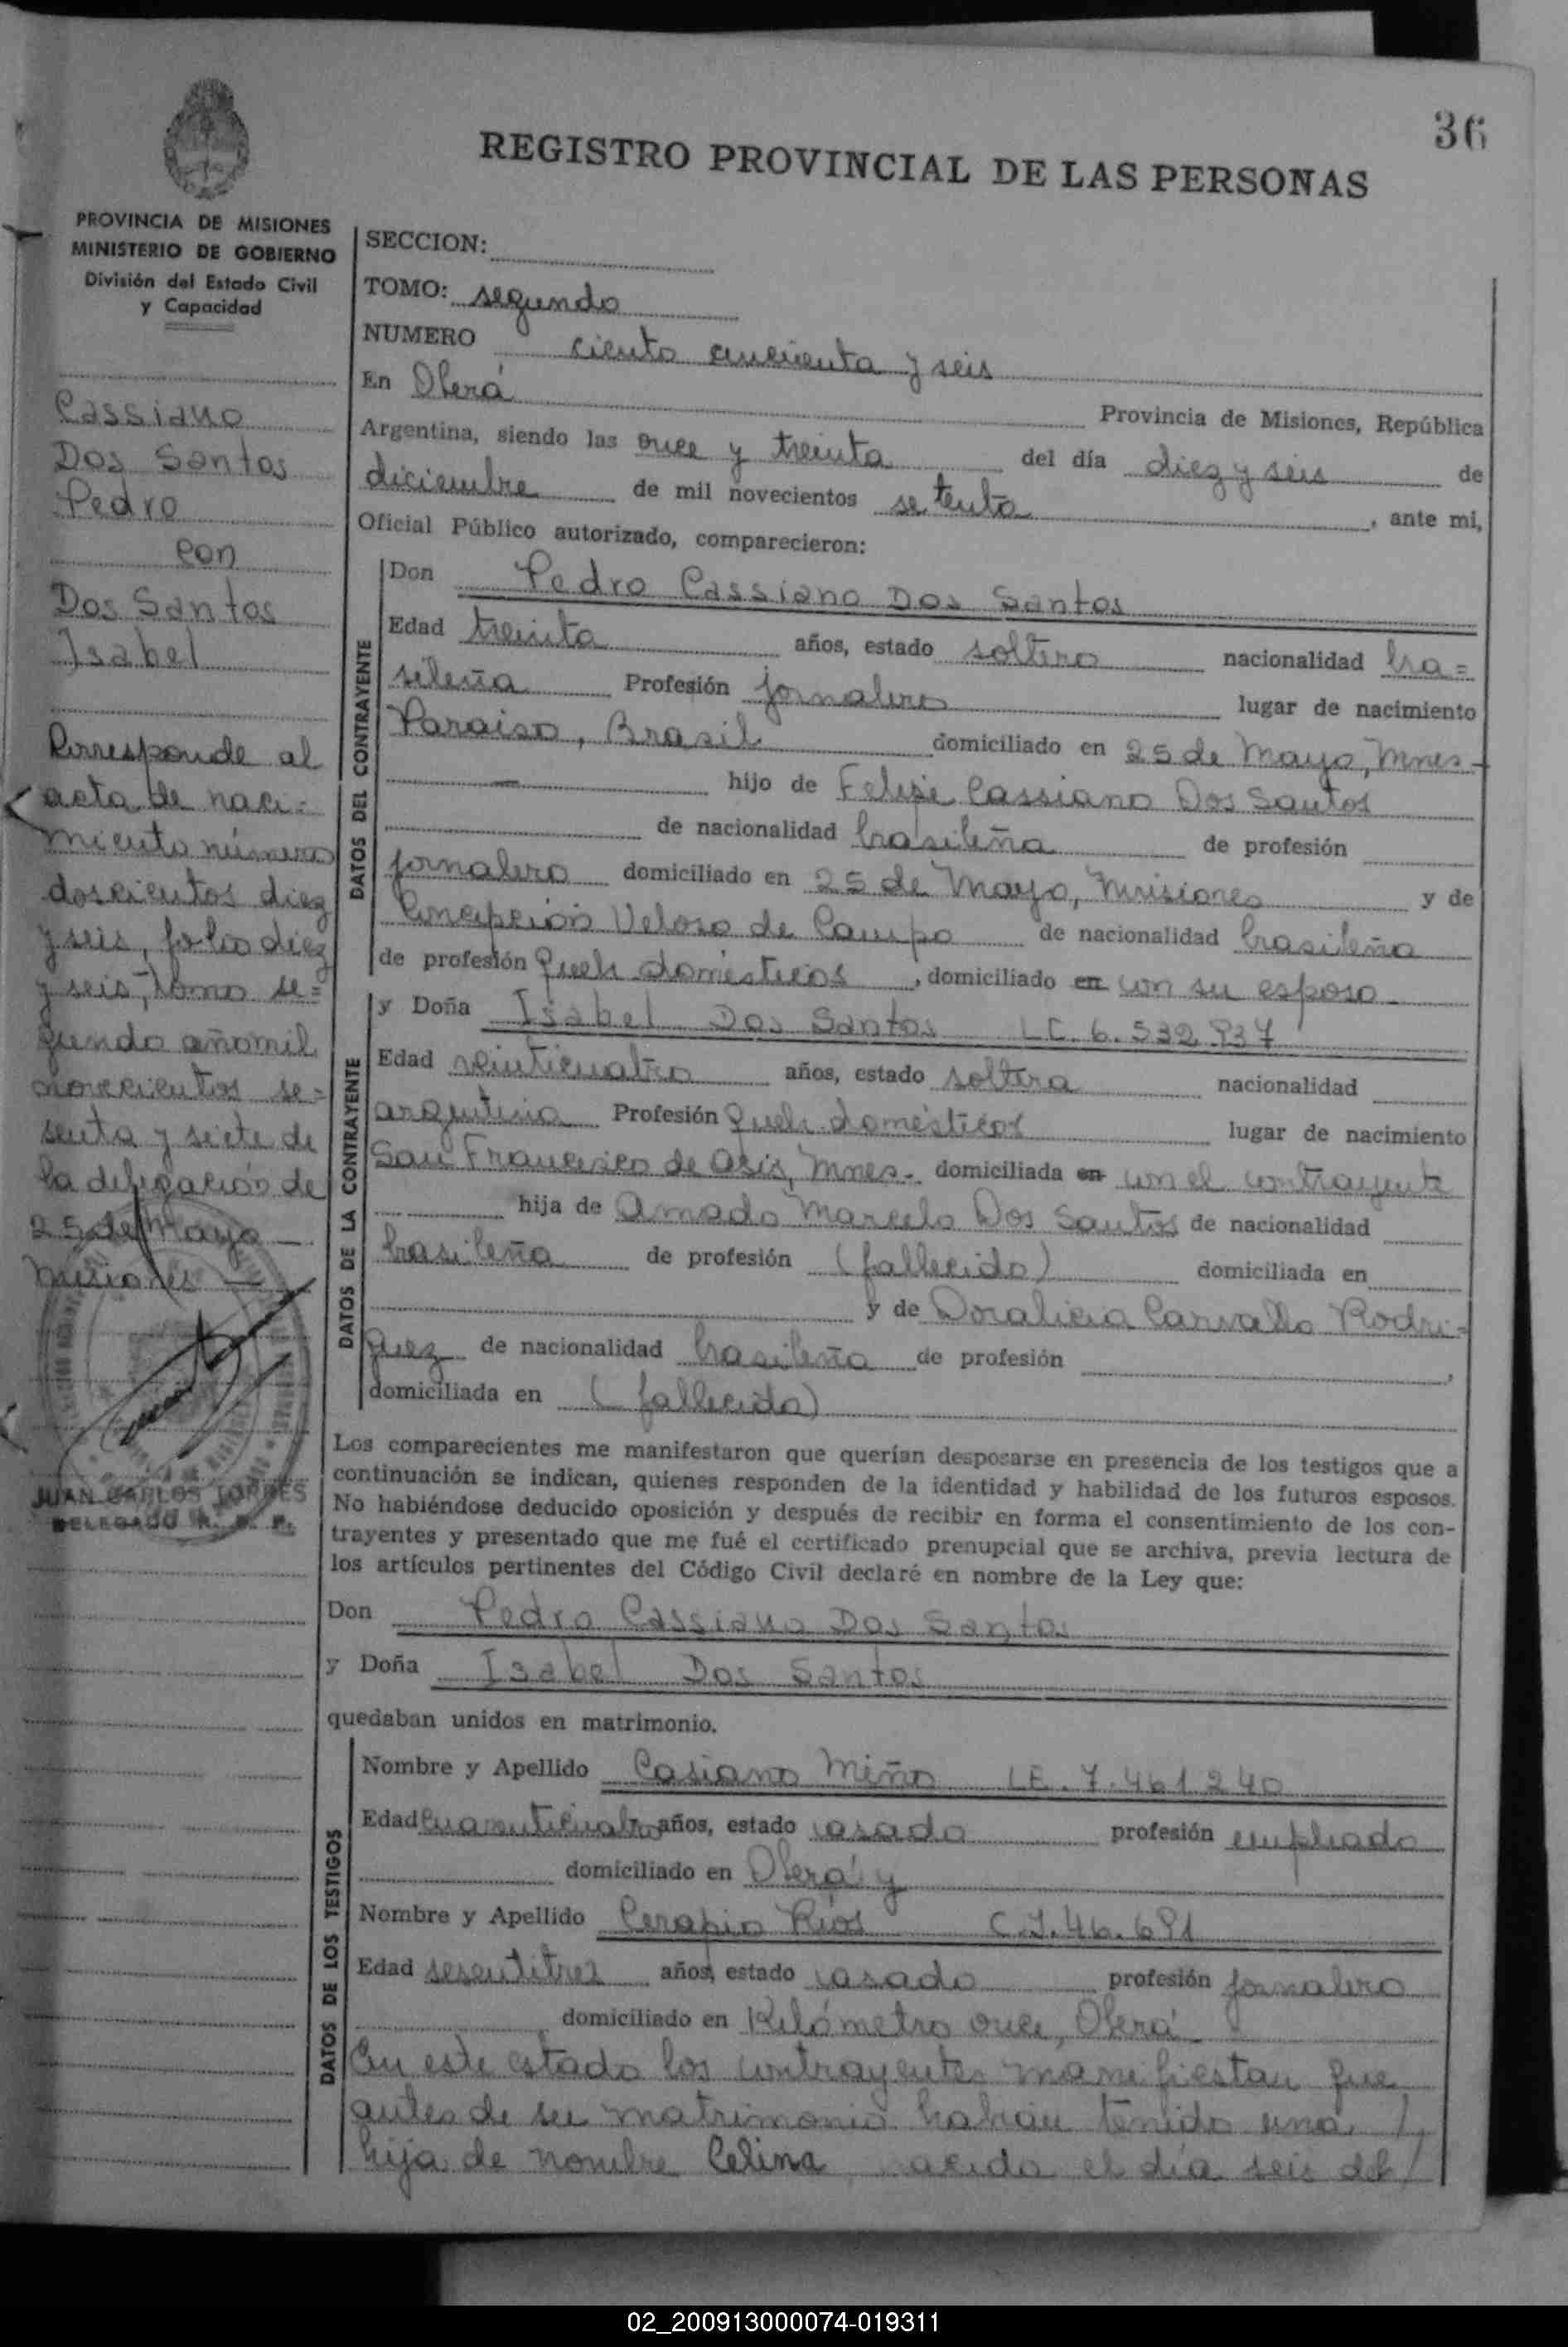 36
REGISTRO PROVINCIAL DE LAS PERSONAS
PROVINCIA DE MISIONES
MINISTERIO DE GOBIERNO
División del Estado Civil
y Capacidad
Cassiano
Dos Santos
Pedro
con
Dos Santos
Isabel
Corresponde al
acta de naci=
miento número
doscientos diez
y seis, folio diez
y seis, tomo se=
gundo año mil
novecientos se=
senta y siete de
la delegación de
25 de Mayo —
Misiones —
JUAN CARLOS TORRES
DELEGADO R. P. P.
SECCION:
TOMO: segundo
NUMERO ciento cincuenta y seis
En Oberá Provincia de Misiones, República
Argentina, siendo las once y treinta del día diez y seis de
diciembre de mil novecientos setenta, ante mi,
Oficial Público autorizado, comparecieron:
DATOS DEL CONTRAYENTE
Don Pedro Cassiano Dos Santos
Edad treinta años, estado soltero nacionalidad bra=
sileña Profesión jornalero lugar de nacimiento
Paraiso, Brasil domiciliado en 25 de Mayo, Mnes-
— hijo de Felipe Cassiano Dos Santos
de nacionalidad brasileña de profesión
jornalero domiciliado en 25 de Mayo, Misiones y de
Concepción Veloso de Campo de nacionalidad brasileña
de profesión queh domésticos, domiciliado en con su esposo
DATOS DE LA CONTRAYENTE
y Doña Isabel Dos Santos LC. 6.532.937
Edad veinticuatro años, estado soltera nacionalidad
argentina Profesión queh. domésticos lugar de nacimiento
San Francisco de Asis, Mnes-. domiciliada en con el contrayente
hija de Amado Marcelo Dos Santos de nacionalidad
brasileña de profesión (fallecido) domiciliada en
y de Doralicia Carvallo Rodri-
guez de nacionalidad brasileña de profesión ,
domiciliada en (fallecida)
Los comparecientes me manifestaron que querían desposarse en presencia de los testigos que a
continuación se indican, quienes responden de la identidad y habilidad de los futuros esposos.
No habiéndose deducido oposición y después de recibir en forma el consentimiento de los con-
trayentes y presentado que me fué el certificado prenupcial que se archiva, previa lectura de
los artículos pertinentes del Código Civil declaré en nombre de la Ley que:
Don Pedro Cassiano Dos Santos
y Doña Isabel Dos Santos
quedaban unidos en matrimonio.
DATOS DE LOS TESTIGOS
Nombre y Apellido Casiano Miño LE. 7.461.240
Edad cuarenticuatro años, estado casado profesión empleado
domiciliado en Oberá y
Nombre y Apellido Cerapio Ríos C.I. 46.691
Edad sesentitres años, estado casado profesión jornalero
domiciliado en Kilómetro once, Oberá
En este estado los contrayentes manifiestan que
antes de su matrimonio habían tenido una /
hija de nombre Celina nacida el día seis del /
02_200913000074-019311